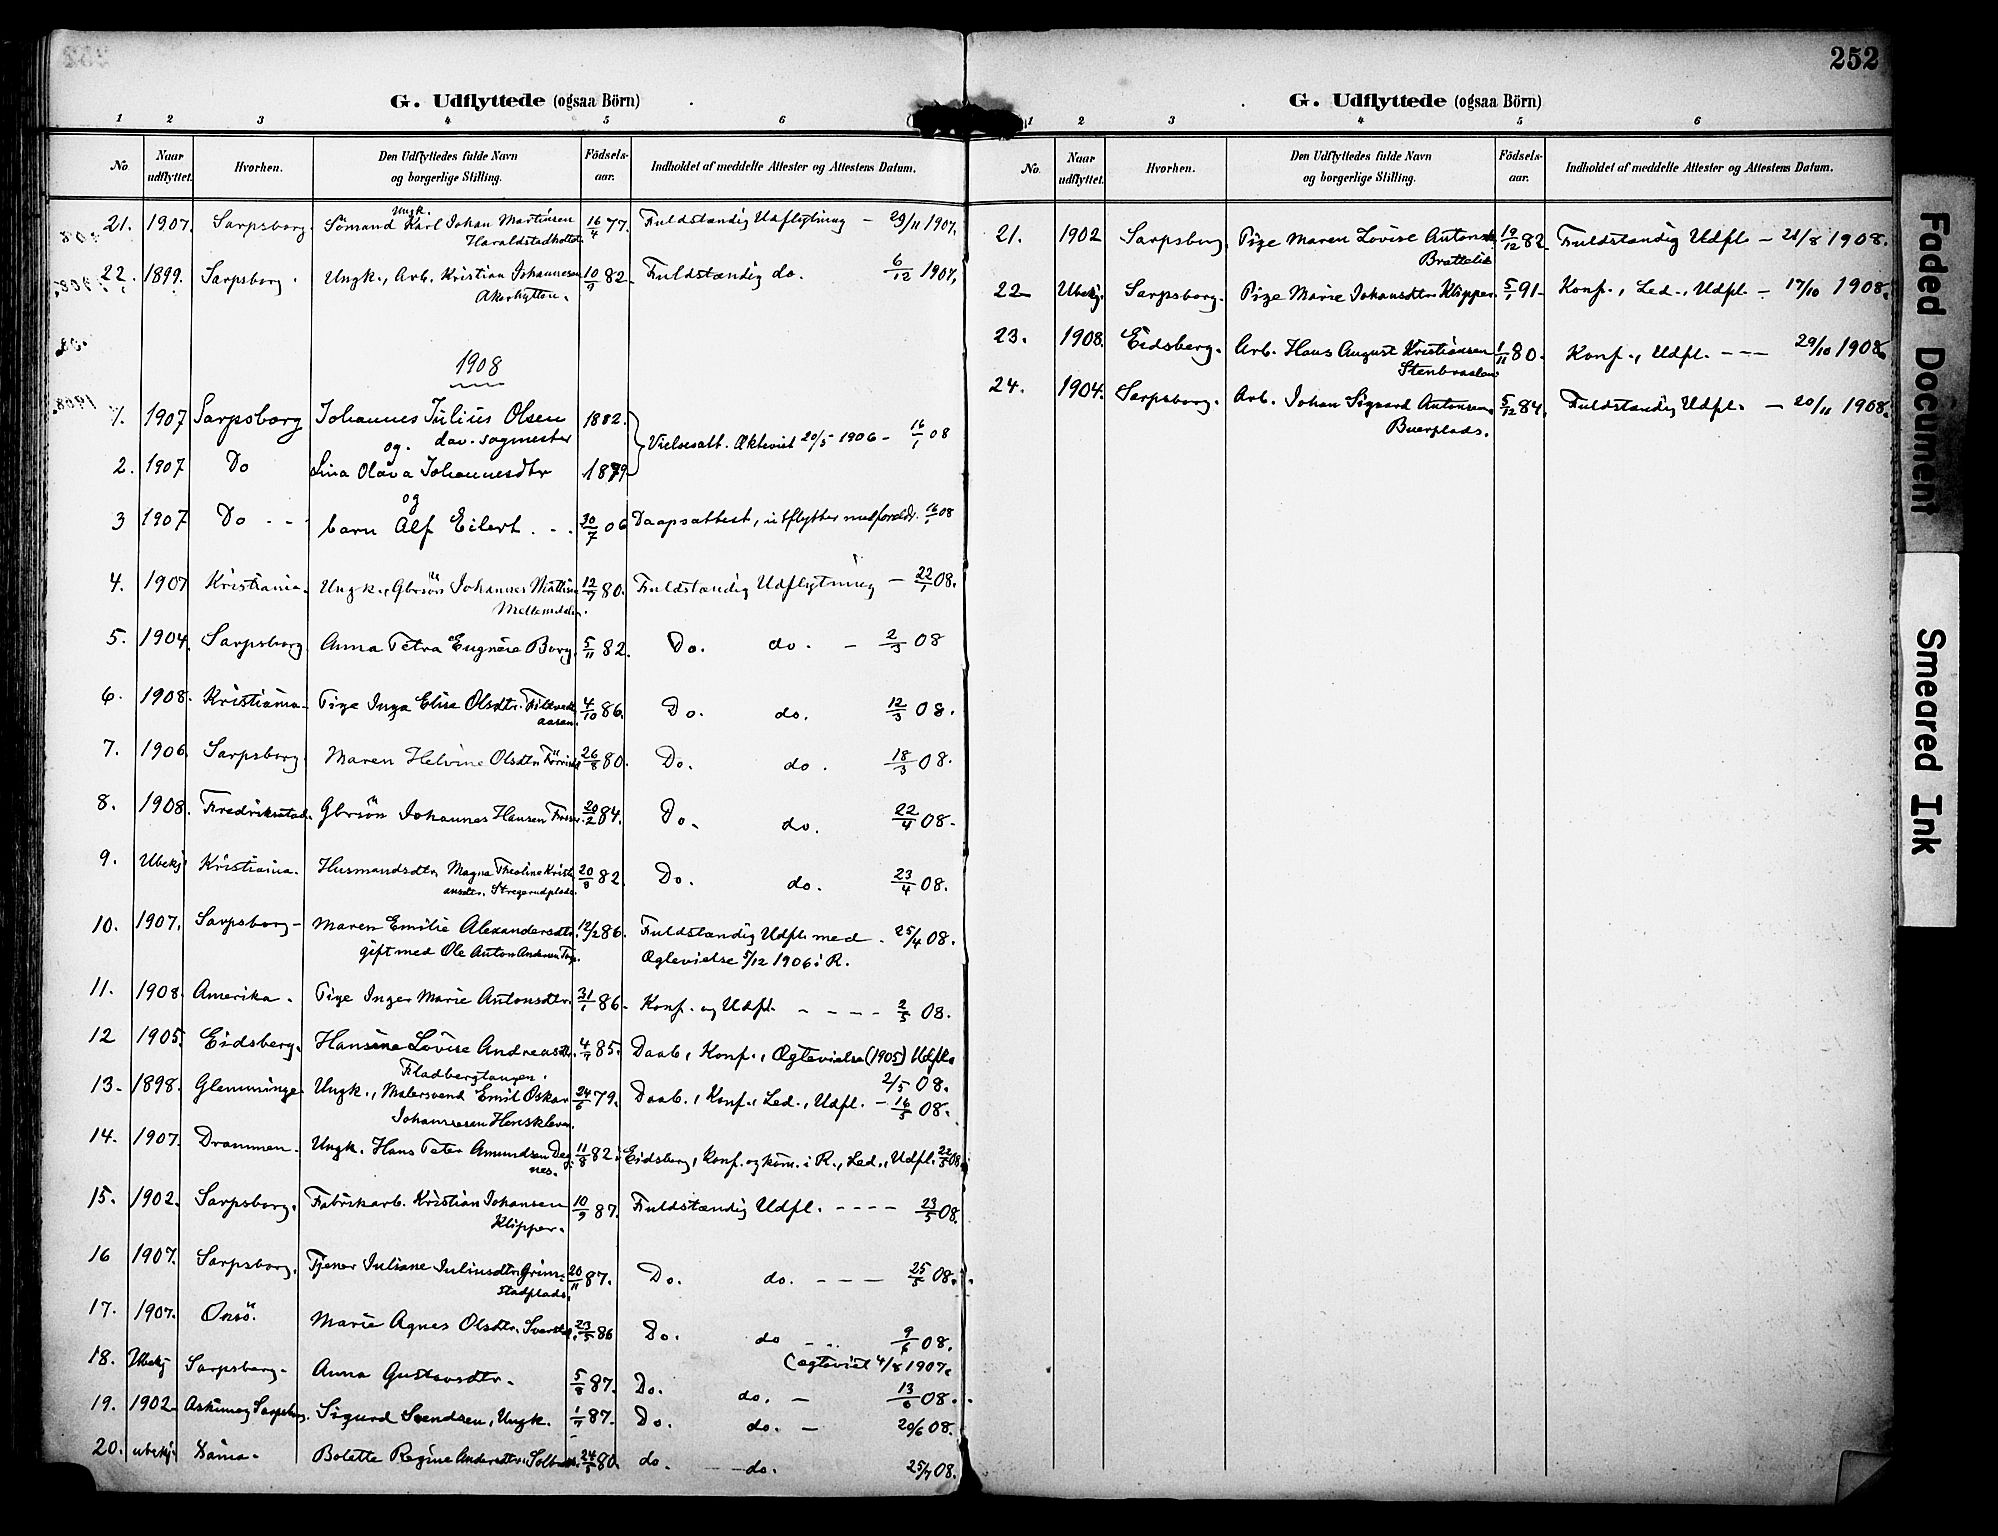 252
G. Udflyttede (ogsaa Börn)
1 2 3 4 5 6
No. Naar udflyttet. Hvorhen. Den Udflyttedes fulde Navn og borgerlige Stilling. Födsels-aar. Indholdet af meddelte Attester og Attestens Datum.
Ungk.
21. 1907. Sarpsborg. Sömand Karl Johan Martinsen 16/4 77. Fuldstændig Udflytning — 29/11 1907.
Haraldstadholtet
22. 1899. Sarpsborg. Ungk., Arb. Kristian Johannesen 10/9 82. Fuldstændig do. 6/12 1907.
Akerhytten.
1908
1. 1907 Sarpsborg Johannes Julius Olsen 1882.
og. dav. sagmester Vielsesatt. Ekteviet 20/5 1906 — 16/1 08
2. 1907 Do Lina Olava Johannesdtr 1879
og
3 1907 Do - - barn Alf Eilert. - - 30/7 06 Daapsattest, utflytter med foreldr. 16/1 08
4. 1907 Kristiania. Ungk., Gbrsön Johannes Mathisen 12/9 80. Fuldstændig Udflytning — 22/1 08.
Mellemdalen.
5. 1904. Sarpsborg. Anna Petra Eugenie Borg. 5/11 82. Do. do. — 2/3 08
6. 1908. Kristiania. Pige Inga Elise Olsdtr. 4/10 86. Do. do. 12/3 08.
aasen.
7. 1906. Sarpsborg. Maren Helvine Olsdtr. 26/8 80. Do. do. 18/3 08.
8. 1908. Fredriksstad. Gbrsön Johannes Hansen 20/2 84. Do. do. 22/4 08.
9. Ubekj Kristiania. Husmandsdtr. Magna Theoline Kristi 20/8 82. Do. do. 23/4 08.
ansdtr. Stregerudplads.
10. 1907. Sarpsborg — Maren Emilie Alexandersdtr. 12/2 86. Fuldstændig Udfl. med - 25/4 08.
gift med Ole Anton Andersen Torp. Ægtevielse 5/12 1906 i R.
11. 1908. Amerika. Pige Inger Marie Antonsdtr. 31/1 86. Konf. og Udfl. - - - - 2/5 08.
12 1905. Eidsberg. Hansine Lovise Andreasdtr. 4/7 85. Daab, Konf., Ægtevielse (1905) Udfl.
Fladbergtangen. 2/5 08.
13. 1898. Glemminge. Ungk., Malersvend Emil Oskar 24/6 79. Daab., Konf., Led., Udfl. — 16/5 08.
Johannesen Heriskleven.
14. 1907. Drammen. Ungk. Hans Peter Amundsen Deg 11/8 82 i Eidsberg, konf. og kom. i R., Led., Udfl. 22/5 08.
nes.
15. 1902. Sarpsborg. Fabrikarb. Kristian Johansen 10/9 87. Fuldstændig Udfl. - - - - 23/5 08.
Klipper.
16 1907. Sarpsborg. Tjener Juliane Juliusdtr. Grim- 20/11 87. Do. do. — — — 25/5 08.
stadplads.
17. 1907. Onsö. Marie Agnes Olsdtr. 23/5 86 Do. do - - 9/6 08.
(ægteviet 4/8 1907.
18. Ubekj Sarpsborg. Anna Gustavsdtr. 5/8 87. Do. do. — 13/6 08.
19. 1902 Askim og Sarpsborg. Sigurd Svendsen, Ungk. 1/7 87. Do. do. — 20/6 08.
20. ubekj. Bolette Regine Andersdtr. 24/5 80. do. — do. 25/7 08.
G. Udflyttede (ogsaa Börn)
1 2 3 4 5 6
No. Naar udflyttet. Hvorhen. Den Udflyttedes fulde Navn og borgerlige Stilling. Födsels-aar. Indholdet af meddelte Attester og Attestens Datum.
21. 1902 Sarpsborg. Pige Maren Lovise Antonsdtr 19/12 82 Fuldstændig Udfl. — 21/8 1908.
Brattelid
22 Ubekj. Sarpsborg. Pige Marie Johansdtr. Klipper. 5/1 91 Konf., Led., Udfl. — 17/10 1908.
23. 1908. Eidsberg. Arb. Hans August Kristiansen 1/11 80. Konf., Udfl. - - - 29/10 1908.
24. 1904. Sarpsborg. Arb. Johan Sigvard Antonsen 5/12 84. Fuldstændig Udfl. — 20/11 1908.
Buerplads.
Faded Document
Smeared Ink